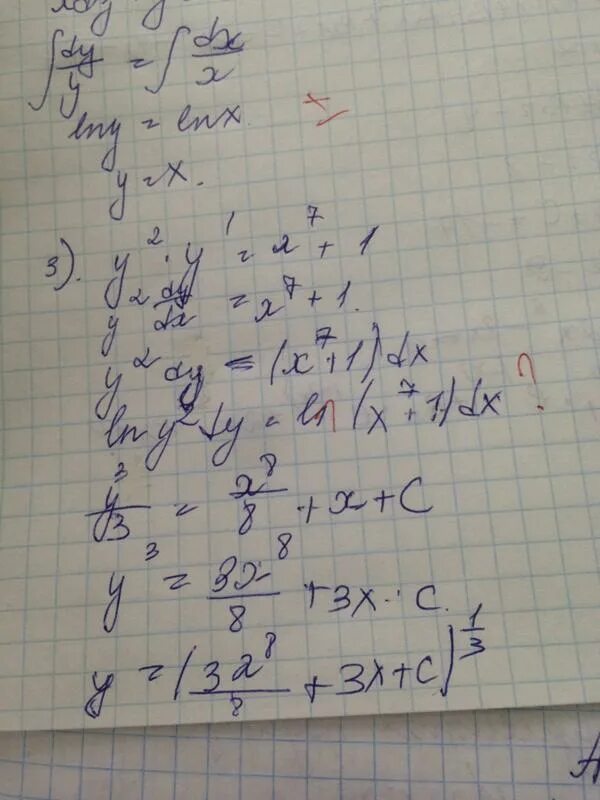 ∫ dy/y = ∫ dx/x
ln y = ln x
y = x.
3). y² · y' = x⁷ + 1
y² dy/dx = x⁷ + 1.
y² dy = (x⁷ + 1) dx
ln y² dy = ln (x⁷ + 1) dx ?
y³/3 = x⁸/8 + x + C
y³ = 3x⁸/8 + 3x · C.
y = (3x⁸/8 + 3x + C)^1/3